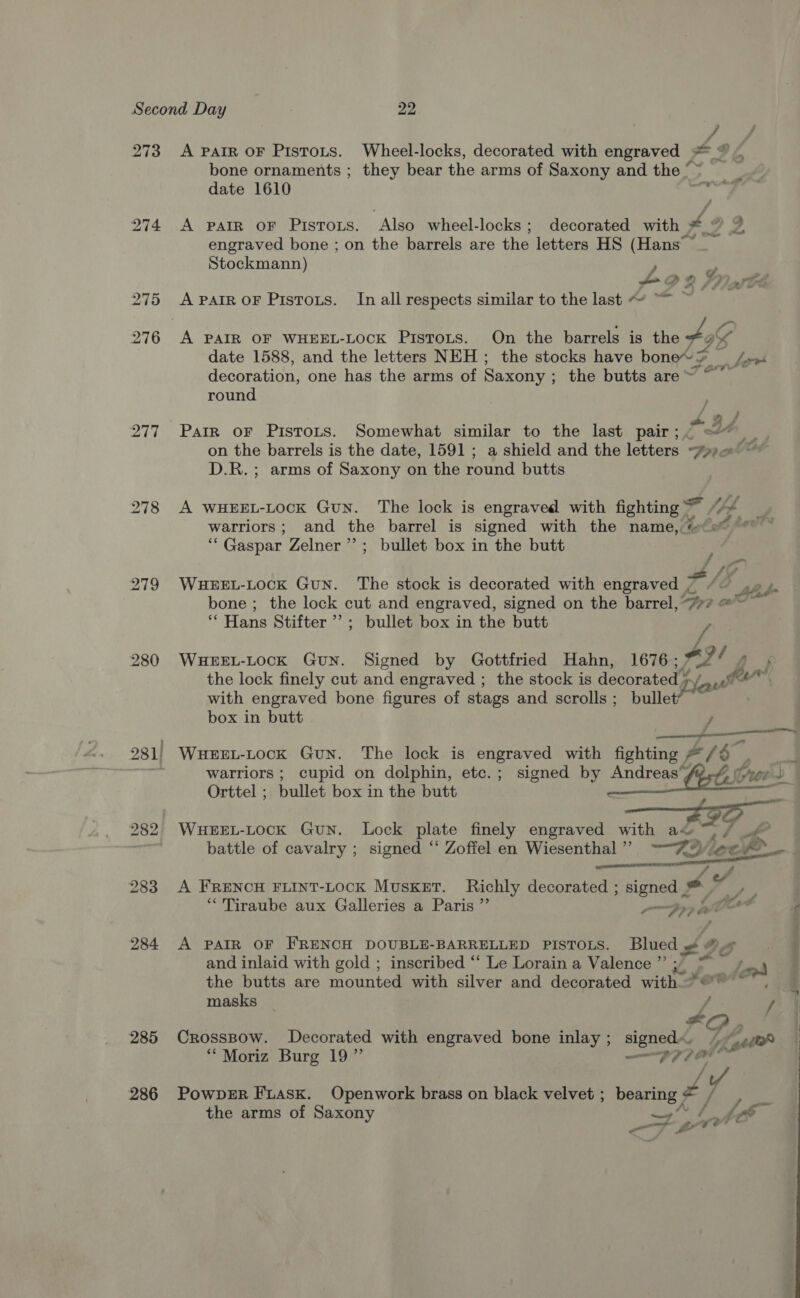 Second Day 22
273 A PAIR OF PISTOLS. Wheel-locks, decorated with engraved
bone ornaments ; they bear the arms of Saxony and the
date 1610
274 A PAIR OF PISTOLS. Also wheel-locks ; decorated with
engraved bone ; on the barrels are the letters HS (Hans
Stockmann)
275 A PAIR OF PISTOLS. In all respects similar to the last
276 A PAIR OF WHEEL-LOCK PISTOLS. On the barrels is the
date 1588, and the letters NEH ; the stocks have bone
decoration, one has the arms of Saxony ; the butts are
round
277 PAIR OF PISTOLS. Somewhat similar to the last pair ;
on the barrels is the date, 1591 ; a shield and the letters
D.R. ; arms of Saxony on the round butts
278 A WHEEL-LOCK GUN. The lock is engraved with fighting
warriors ; and the barrel is signed with the name,
“Gaspar Zelner” ; bullet box in the butt
279 WHEEL-LOCK GUN. The stock is decorated with engraved
bone ; the lock cut and engraved, signed on the barrel,
“Hans Stifter” ; bullet box in the butt
280 WHEEL-LOCK GUN. Signed by Gottfried Hahn, 1676 ;
the lock finely cut and engraved ; the stock is decorated
with engraved bone figures of stags and scrolls ; bullet
box in butt
281 WHEEL-LOCK GUN. The lock is engraved with fighting
warriors ; cupid on dolphin, etc. ; signed by Andreas
Orttel ; bullet box in the butt
282 WHEEL-LOCK GUN. Lock plate finely engraved with a
battle of cavalry ; signed “Zoffel en Wiesenthal”
283 A FRENCH FLINT-LOCK MUSKET. Richly decorated ; signed
“Tiraube aux Galleries a Paris”
284 A PAIR OF FRENCH DOUBLE-BARRELLED PISTOLS. Blued
and inlaid with gold ; inscribed “Le Lorain a Valence” ;
the butts are mounted with silver and decorated with
masks
285 CROSSBOW. Decorated with engraved bone inlay ; signed
“Moriz Burg 19”
286 POWDER FLASK. Openwork brass on black velvet ; bearing
the arms of Saxony